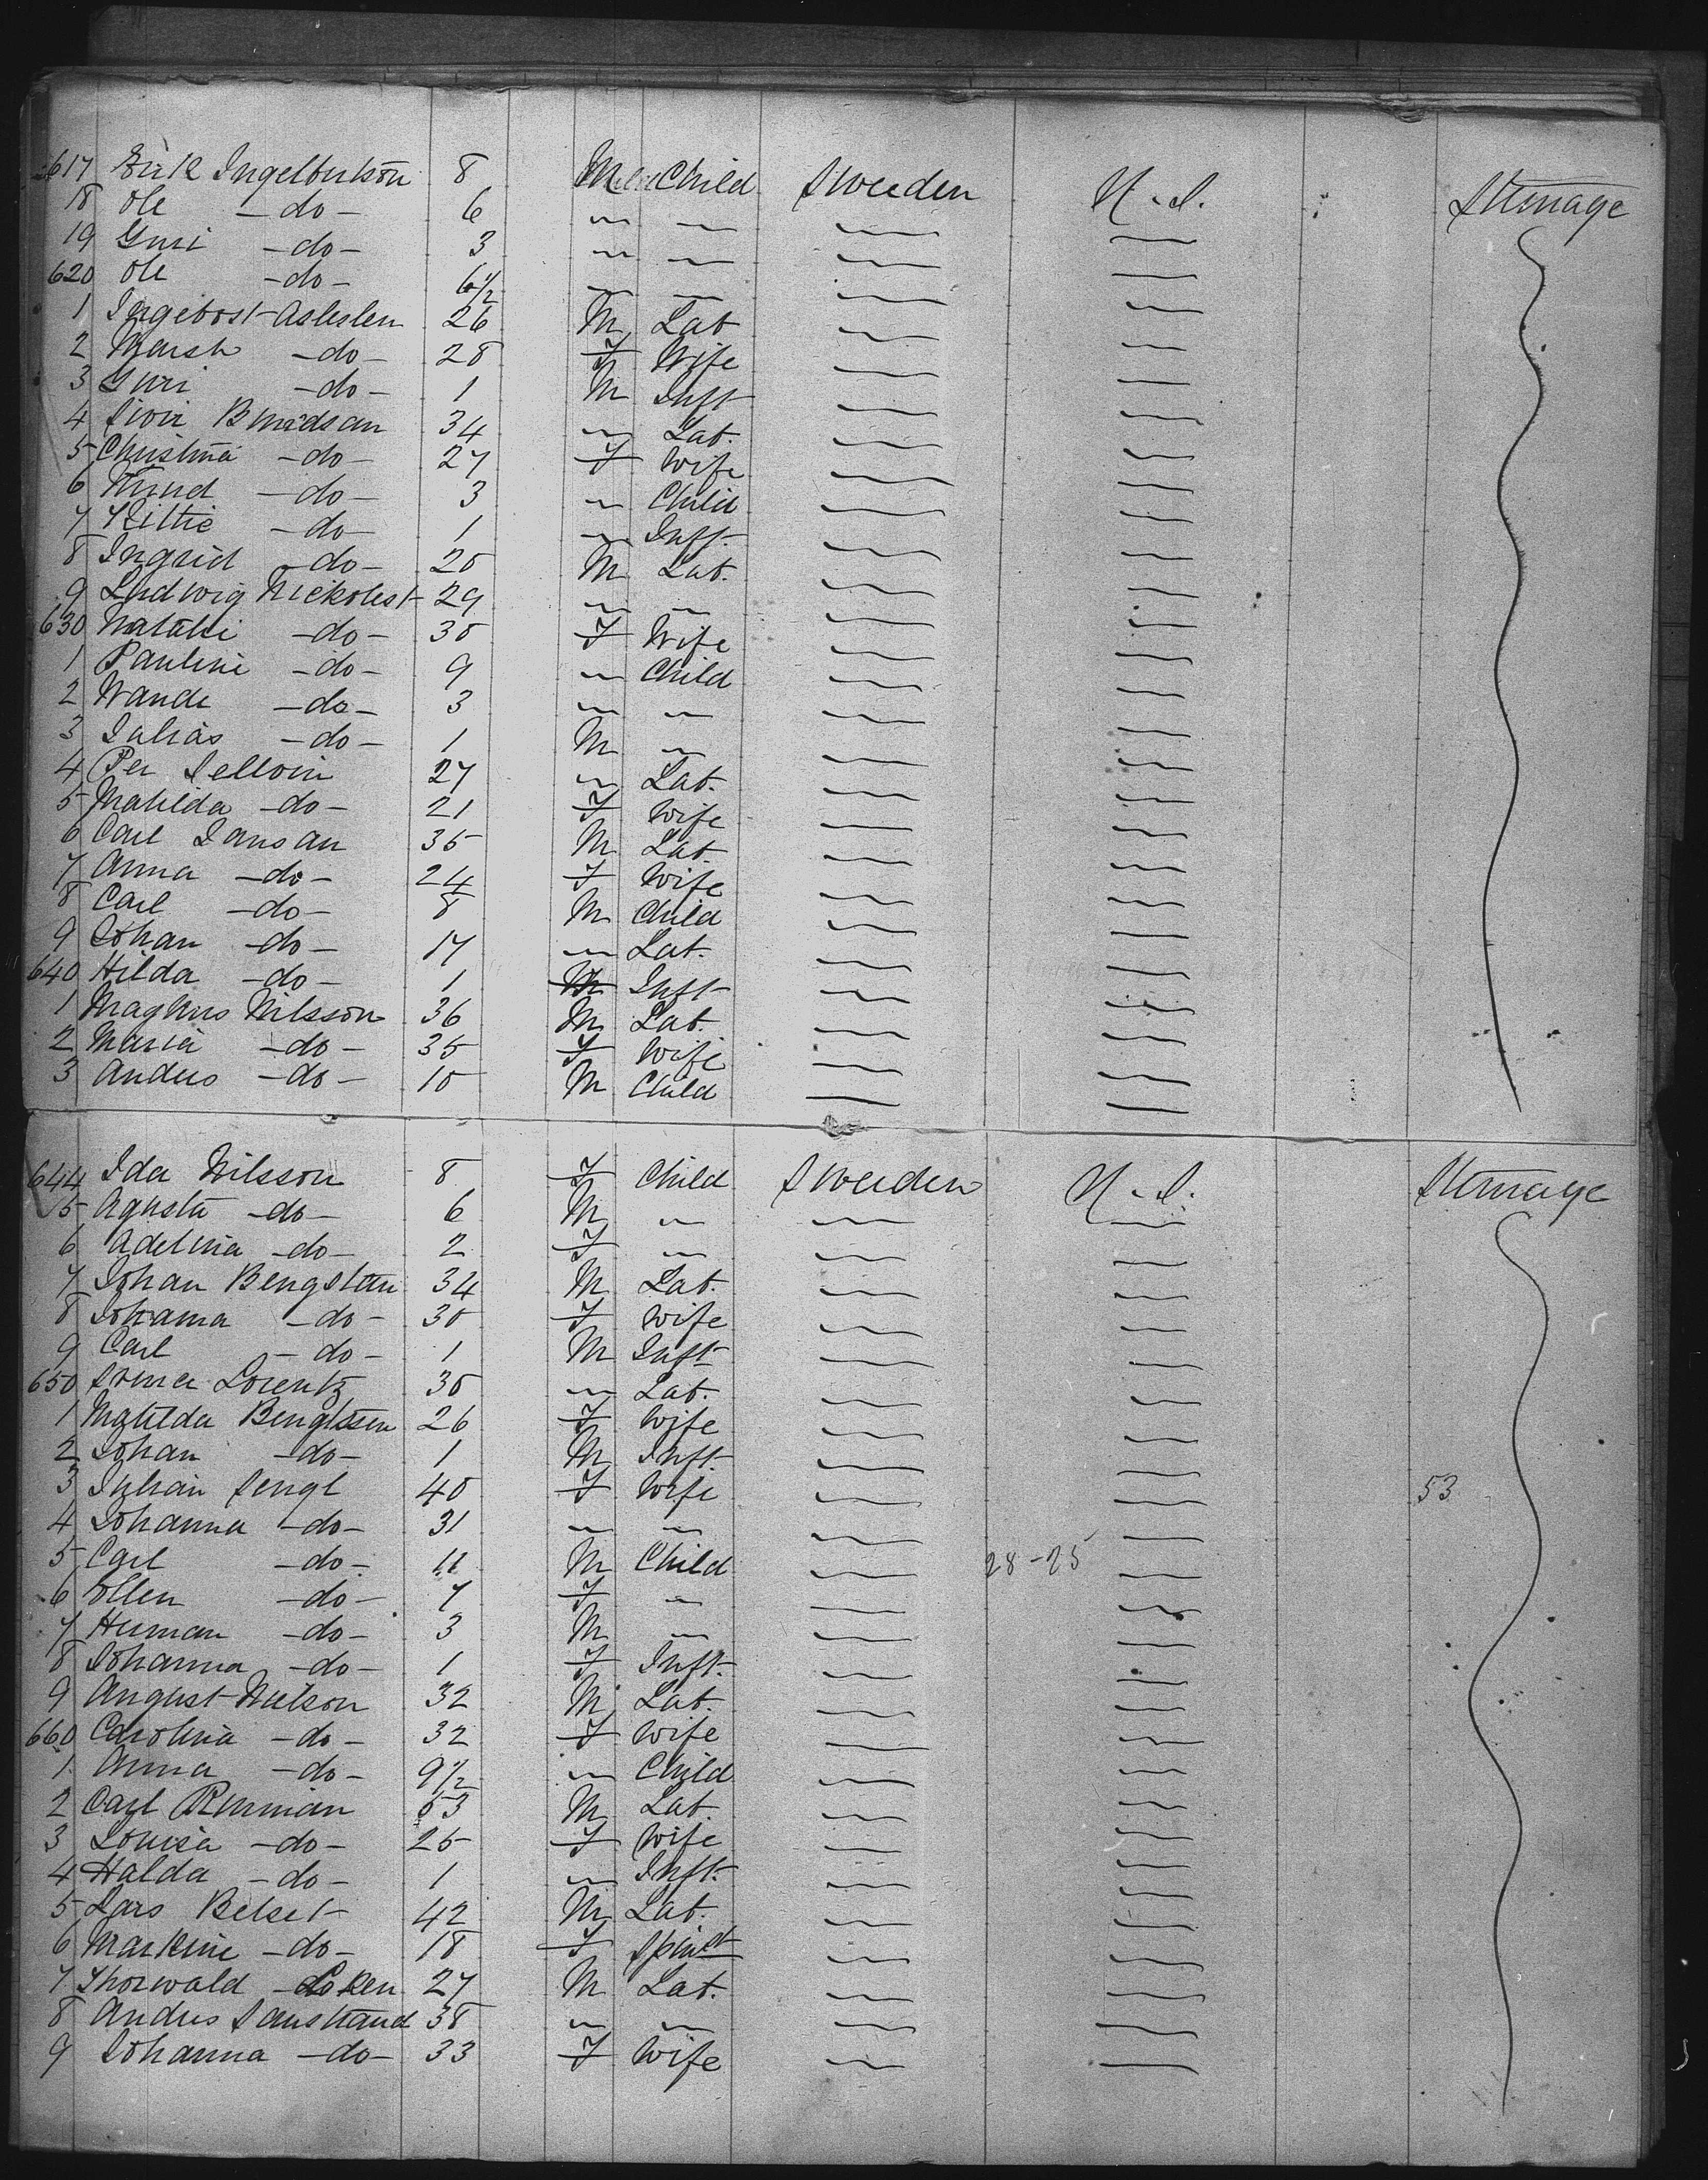 617 Erik Ingelbutson 8 M Child Sweden U.S. Stmage
18 Ole -do- 6 " "
19 Guri -do- 3 " "
620 Ole -do- 6 1/2 " "
1 Ingebost Asleslen 26 M Lab
2 -do- 28 F Wife
3 Guri -do- 1 M Inft
4 Siori 34 " Lab.
5 Christina -do- 27 F Wife
6 Knud -do- 3 " Child
7 Kittie -do- 1 " Inft.
8 Ingrid -do- 20 M Lab.
9 Ludwig Nickolest 29 " "
630 Natalie -do- 30 F Wife
1 Pauline -do- 9 " Child
2 Wande -do- 3 " "
3 Julias -do- 1 M "
4 Per Sellvin 27 " Lab.
5 Matilda -do- 21 F Wife
6 Carl Jansan 35 M Lab.
7 Anna -do- 24 F Wife
8 Carl -do- 8 M Child
9 Johan -do- 17 " Lab.
640 Hilda -do- 1 M Inft
1 Maghus Nilsson 36 M Lab.
2 Maria -do- 35 F Wife
3 Andus -do- 10 M Child
644 Ida Nilsson 8 F Child Sweden U.S. Stmage
5 Agusta -do- 6 M "
6 Adelina -do- 2 F "
7 Johan Bengstan 34 M Lab.
8 Johanna -do- 30 F Wife
9 Carl -do- 1 M Inft
650 Lorentz 30 " Lab.
1 Matilda Bengtssen 26 F Wife
2 Johan -do- 1 M Inft.
3 Julian Sengl 40 F Wife 53
4 Johanna -do- 31 " "
5 Carl -do- 11 M Child 28-25
6 Ellen -do- 7 F "
7 Herman -do- 3 M "
8 Johanna -do- 1 F Inft.
9 August Nielson 32 M Lab.
660 Carolina -do- 32 F Wife
1 Anna -do- 9 1/2 " Child
2 Carl 53 M Lab.
3 Louisa -do- 25 F Wife
4 Halda -do- 1 " Inft.
5 Lars Belset 42 M Lab.
6 Markine -do- 18 F Spinst
7 Thorwald Loken 27 M Lab.
8 Andus Saustand 38 " "
9 Johanna -do- 33 F Wife